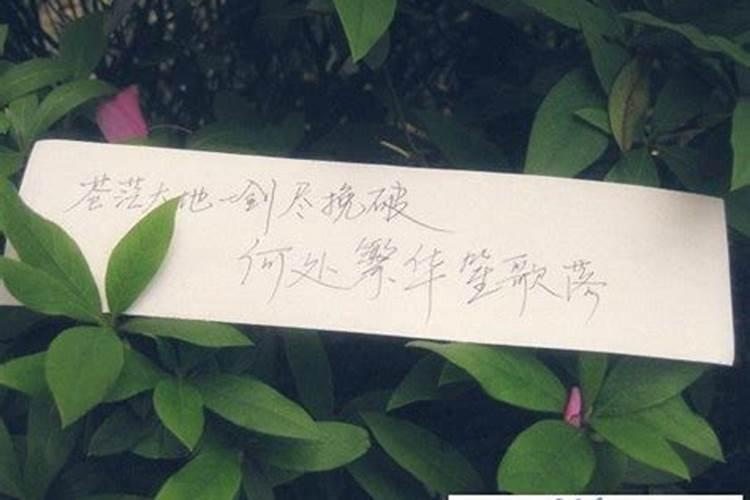 苍茫大地一剑尽挽破
何处繁华笙歌落